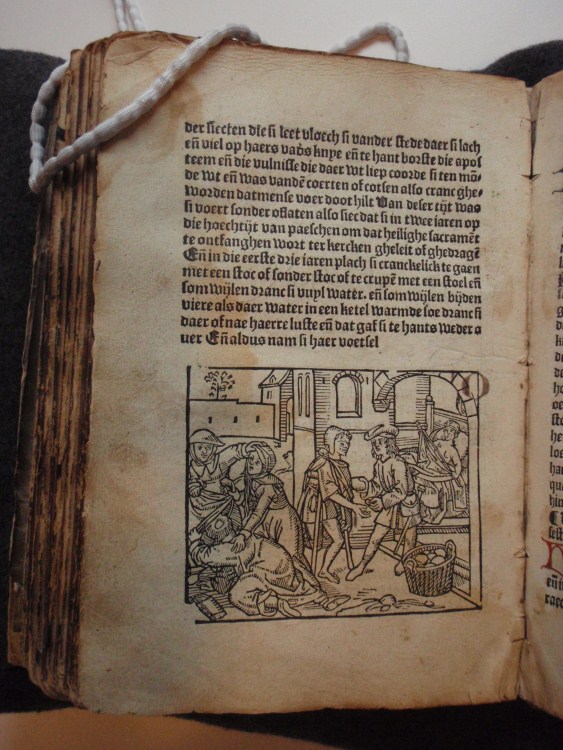 der siecten die si leet vloech si vander stede daer si lach
eñ viel op haers vad's knye eñ te hant borste die apos
teem eñ die vulnisse die daer wt liep coorde si ten mō-
de wt eñ was vandē coerten of cotsen also cranc ghe-
worden datmense voer doot hilt Van deser tijt was
si voert sonder oflaten also siec dat si in twee iaren op
die hoechtijt van paeschen om dat heilighe sacramēt
te ontfanghen wort ter kercken gheleit of ghedragē
Eñ in die eerste drie iaren plach si cranckelick te gaen
met een stoc of sonder stoc of te crupē met een stoel eñ
som wijlen dranc si vuyl water. eñ som wijlen bijden
viere als daer water in een ketel warmde soe dranc si
daer of nae haerre luste eñ dat gaf si te hants weder o
uer Eñ aldus nam si haer voetsel